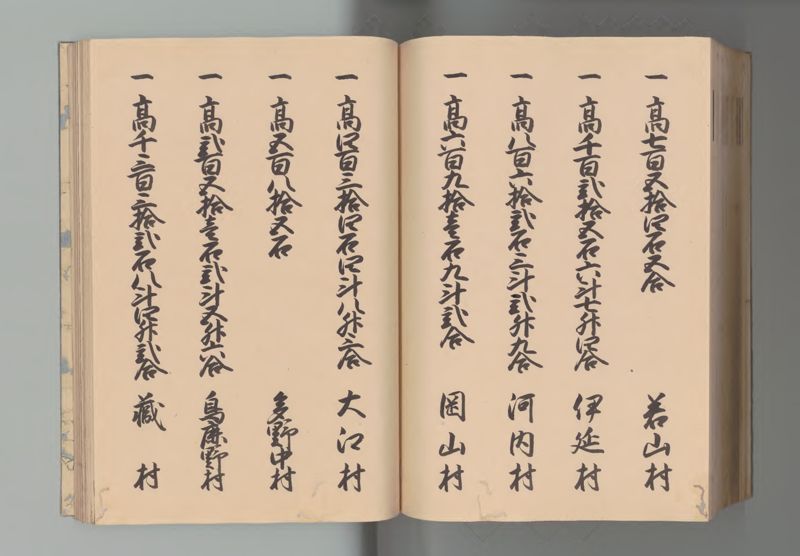 一 高七百五拾四石五合 若山村
一 高千百弐拾五石六斗七升四合 伊延村
一 高八百六拾弐石三斗弐升九合 河内村
一 高六百九拾壱石九斗弐合 岡山村
一 高四百三拾四石四斗八升三合 大江村
一 高五百八拾五石 多野中村
一 高弐百五拾壱石弐斗五升六合 鳥廉野村
一 高千三百三拾弐石八斗四升弐合 蔵村